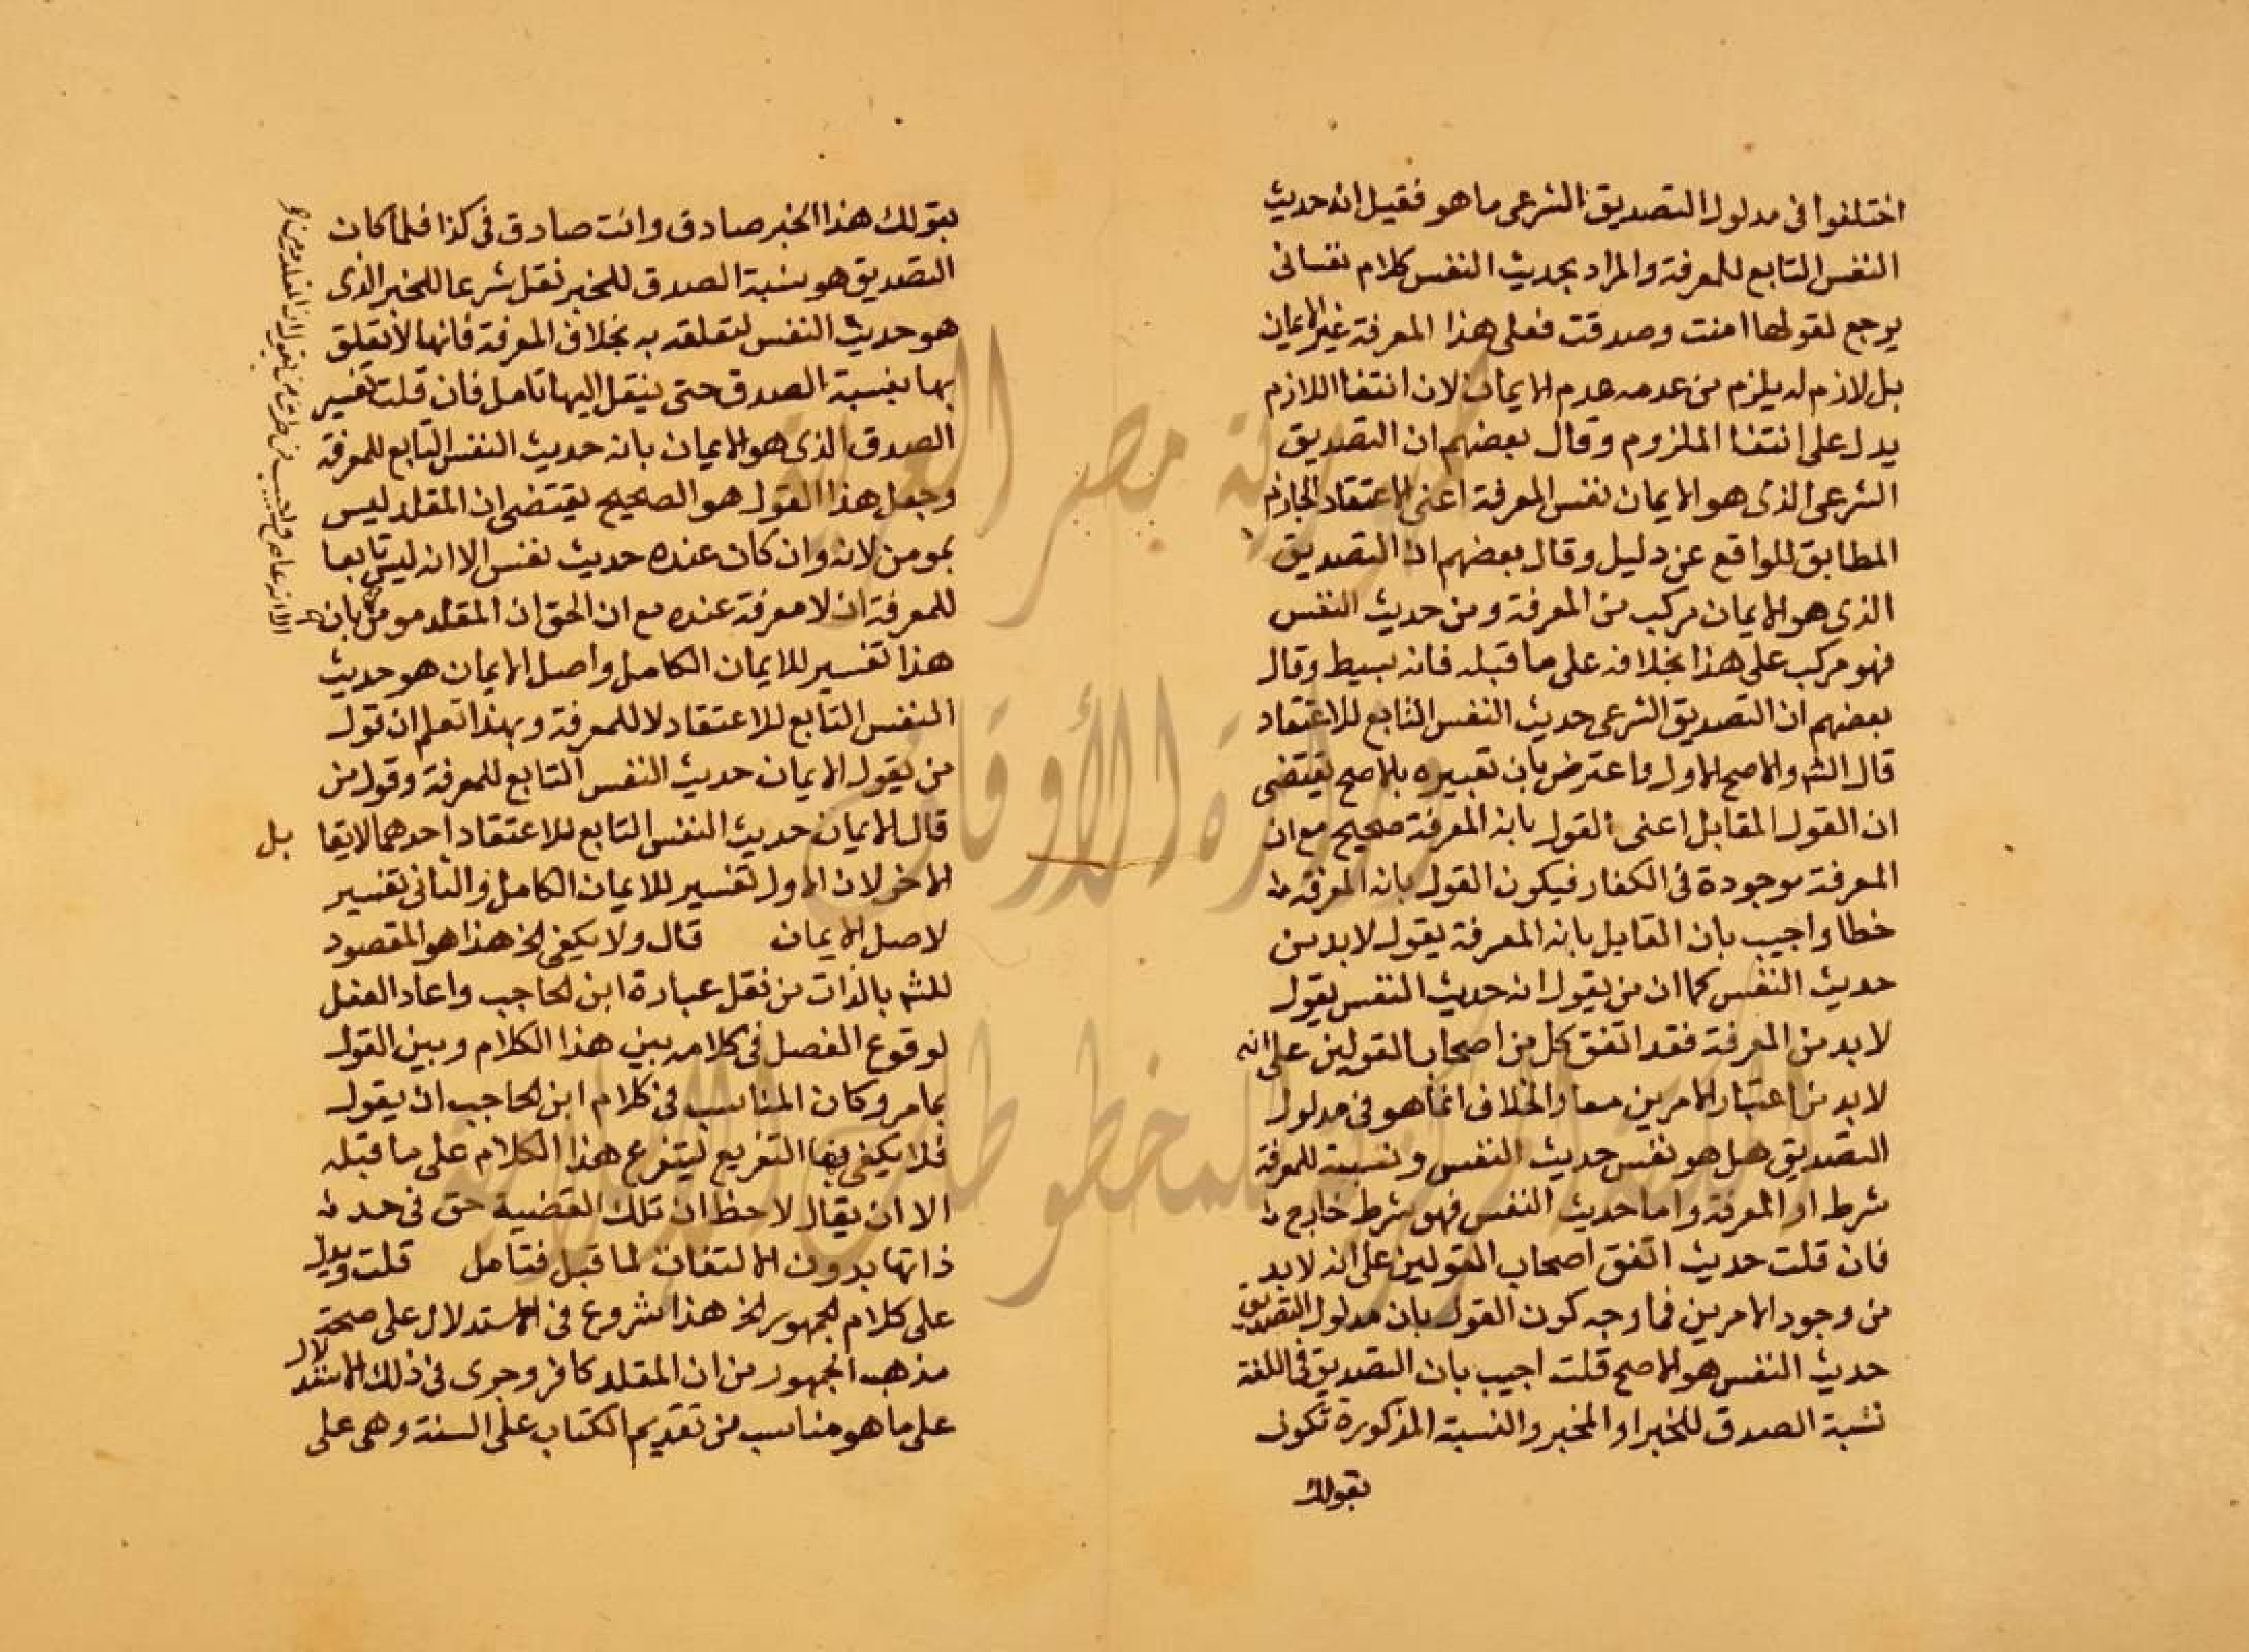 اختلفوا فى مدلول التصديق الشرعى ما هو فقيل انه حديث
النفس التابع للمعرفة والمراد بحديث النفس كلام نفسانى
يرجع لقولها امنت وصدقت فعلى هذا المعرفة غير الايمان
بل لازم له يلزم من عدمه عدم الايمان لان انتفا اللازم
يدل على انتفا الملزوم وقال بعضهم ان التصديق
الشرعى الذى هو الايمان نفس المعرفة اعنى الاعتقاد الجازم
المطابق للواقع عن دليل وقال بعضهم ان التصديق
الذى هو الايمان مركب من المعرفة ومن حديث النفس
فهو مركب على هذا بخلافه على ما قبله فانه بسيط وقال
بعضهم ان التصديق الشرعى حديث النفس التابع للاعتقاد
قال الشم والاصح الاول واعترض بان تعبيره بالاصح يقتضى
ان القول المقابل اعنى القول بانه المعرفة صحيح مع ان
المعرفة موجودة فى الكفار فيكون القول بانه المعرفة
خطا واجيب بان القايل بانه المعرفة يقول لابد من
حديث النفس كما ان من يقول انه حديث النفس يقول
لابد من المعرفة فقد اتفق كل من اصحاب القولين على انه
لابد من اعتبار الامرين معا والخلاف انما هو فى مدلول
التصديق هل هو نفس حديث النفس ونسبة للمعرفة
شرط او المعرفة واما حديث النفس فهو شرط خارج
فان قلت حديث اتفق اصحاب القولين على انه لابد
من وجود الامرين فما وجه كون القول بان مدلول التصديق
حديث النفس هو الاصح قلت اجيب بان التصديق فى اللغة
نسبة الصدق للخبر او المخبر والنسبة المذكورة تكون
بقولك
بقولك هذا الخبر صادق وانت صادق فى كذا فلما كان
التصديق هو نسبة الصدق للخبر نقل شرعا للخبر الذى
هو حديث النفس لتعلقه به بخلاف المعرفة فانها لا تعلق
بها بنسبة الصدق حتى ينقل اليها تامل فان قلت تفسير
الصدق الذى هو الايمان بانه حديث النفس التابع للمعرفة
وجعل هذا القول هو الصحيح يقتضى ان المقلد ليس
بمومن لانه وان كان عنده حديث نفس الا انه ليس تابعا
للمعرفة ان لا معرفة عنده مع ان الحق ان المقلد مومن بان
هذا تفسير للايمان الكامل واصل الايمان هو حديث
النفس التابع للاعتقاد لا للمعرفة وبهذا تعلم ان قول
من يقول الايمان حديث النفس التابع للمعرفة وقول من
قال الايمان حديث النفس التابع للاعتقاد احدهما لا يقا
بل
الاخر لان الاول تفسير للايمان الكامل والثانى تفسير
لاصل الايمان قال ولا يكفى الخ هذا هو المقصود
للشم بالذات من نقل عبارة ابن الحاجب واعاد الفعل
لوقوع الفصل فى كلامه بين هذا الكلام وبين القول
بما مر وكان المناسب فى كلام ابن الحاجب ان يقول
فلا يكفى بفا التفريع ليتفرع هذا الكلام على ما قبله
الا ان يقال لاحظ ان تلك القضية حق فى حد
ذاتها بدون الالتفات لما قبل فتامل قلت ويدل
على كلام الجمهور الخ هذا شروع فى الاستدلال على صحة
مذهب الجمهور من ان المقلد كافر وجرى فى ذلك الاستدلال
على ما هو مناسب من تقديم الكتاب على السنة وهى على
جمهورية مصر العربية
وزارة الأوقاف
المكتبة المركزية للمخطوطات الإسلامية